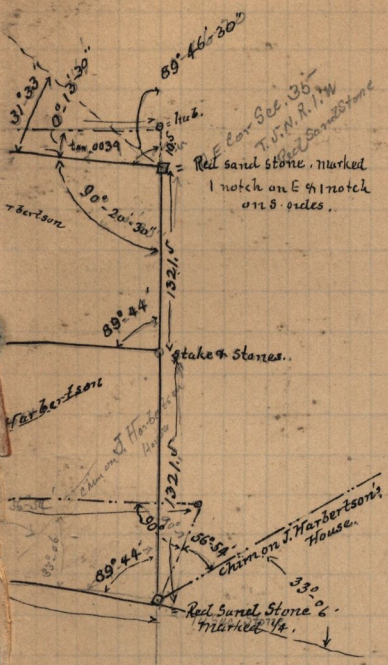 89°-46'-30"
31°-33'
0°-13'-30"
= hub.
tan .0039
E Cor Sec. 35
T.5.N.R.1.W
Red Sand Stone
= Red sand stone, marked
1 notch on E & 1 notch
on S. sides.
90°-20'-30"
rbertson
1321.5
89°-44'
Stake & Stones.
Harbertson
chim on J. Harbertson
House
1321.5
90°
56°-54'
Chim on J. Harbertson's
House.
89°-44'
33°-06'
= Red Sand Stone
Marked 1/4.